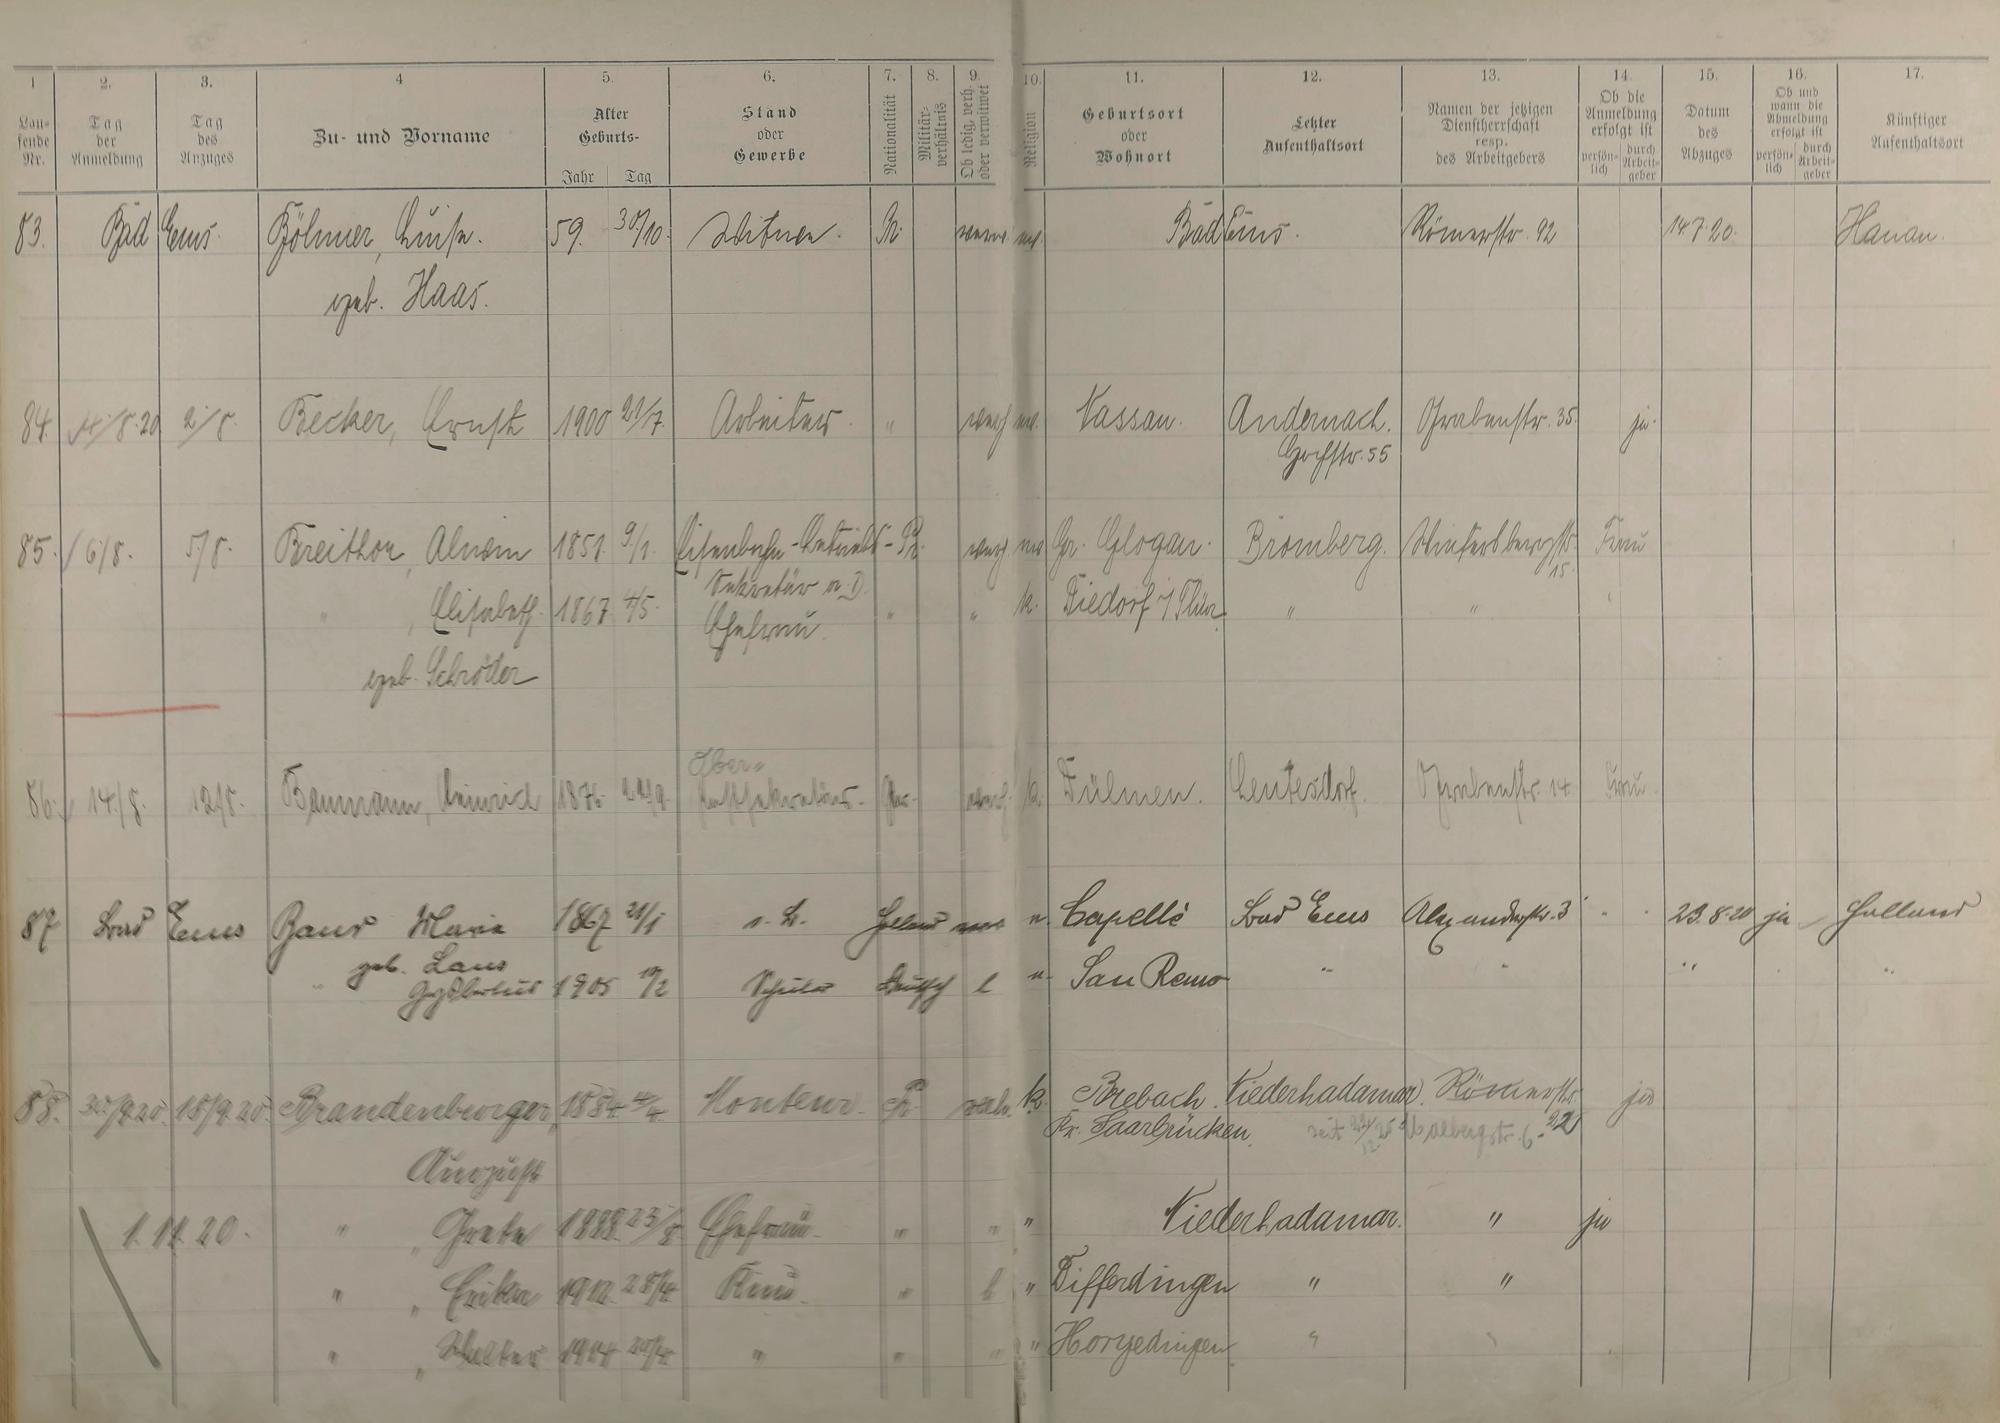 1 2. 3. 4 5. 6. 7. 8. 9. 10. 11. 12. 13. 14. 15. 16. 17.
Lau-
fende
Nr.
Tag
der
Anmeldung
Tag
des
Anzuges
Zu- und Vorname
Alter
Geburts-
Jahr Tag
Stand
oder
Gewerbe
Nationalität
Militär-
verhältnis
Ob ledig, verh.
oder verwitwet
Religion
Geburtsort
oder
Wohnort
Letzter
Aufenthaltsort
Namen der jetzigen
Dienstherrschaft
resp.
des Arbeitgebers
Ob die
Anmeldung
erfolgt ist
persön-
lich
durch
Arbeit-
geber
Datum
des
Abzuges
Ob und
wann die
Abmeldung
erfolgt ist
persön-
lich
durch
Arbeit-
geber
Künftiger
Aufenthaltsort
83. Bad Ems. Böhmer, Luise. 59. 30/10. Witwe. Pr. Bad Ems. Römerstr. 92 14.7.20. Hanau.
geb. Haas.
84. 4./8.20 2./8. Becker, Ernst 1900 21/7. Arbeiter. " verh ev. Nassau. Andernach. Grabenstr. 35. ja.
Hochstr. 55
85. 6/8. 5/8. Breithor, Alwin 1851. 9/1. Eisenbahn-Betriebs- Pr. verh ev Gr. Glogau. Bromberg. Wintersbergstr. Frau
15.
Sekretär a.D.
" , Elisabeth. 1867. 4/5. Ehefrau. " " k. Diedorf i/Thür. " "
geb. Schröder
86. 14./8. 12/8. Baumann, Heinrich 1876 22/9. Ober-
Postsekretär. Pr. verh. k. Dülmen. Leutesdorf. Grabenstr. 14 Frau
87 Bad Ems Baur Maria 1867 21/1 o. B. Holland e. Capelle Bad Ems Alexanderstr. 3 23.8.20 ja Holland
geb. Laus
" 1905 19/2 Schüler Deutsch l e. San Remo " " " "
88. 20/9.20. 18/9.20. Brandenburger, 1884. 4/4. Monteur. Pr. verh. k. Brebach. Niederhadamar. Römerstr. ja
Kr. Saarbrücken. seit Malbergstr. 6. 22
August
1.11.20. " , Grete 1888. 23/8. Ehefrau. " " " Niederhadamar. " ja
" , Erika 1912. 28/4. Kind. " l " Differdingen " "
" , Walter 1914 20/4. " " " " Horgedingen. "